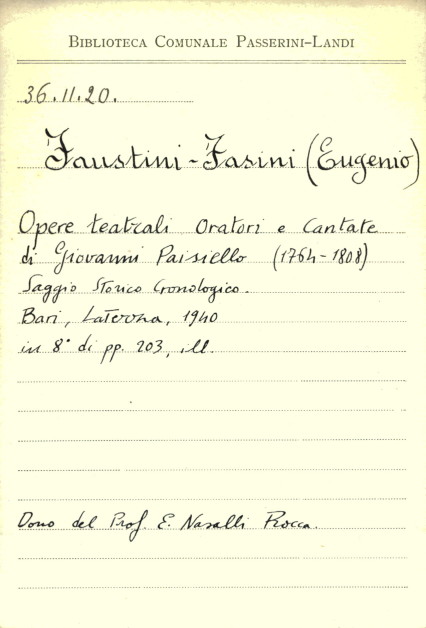 BIBLIOTECA COMUNALE PASSERINI-LANDI
36.11.20.
Faustini-Fasini (Eugenio)
Opere teatrali Oratori e Cantate
di Giovanni Paisiello (1764-1808)
Saggio Storico Cronologico.
Bari, Laterza, 1940
in 8° di pp. 203, ill.
Dono del Prof. E. Nasalli Rocca.